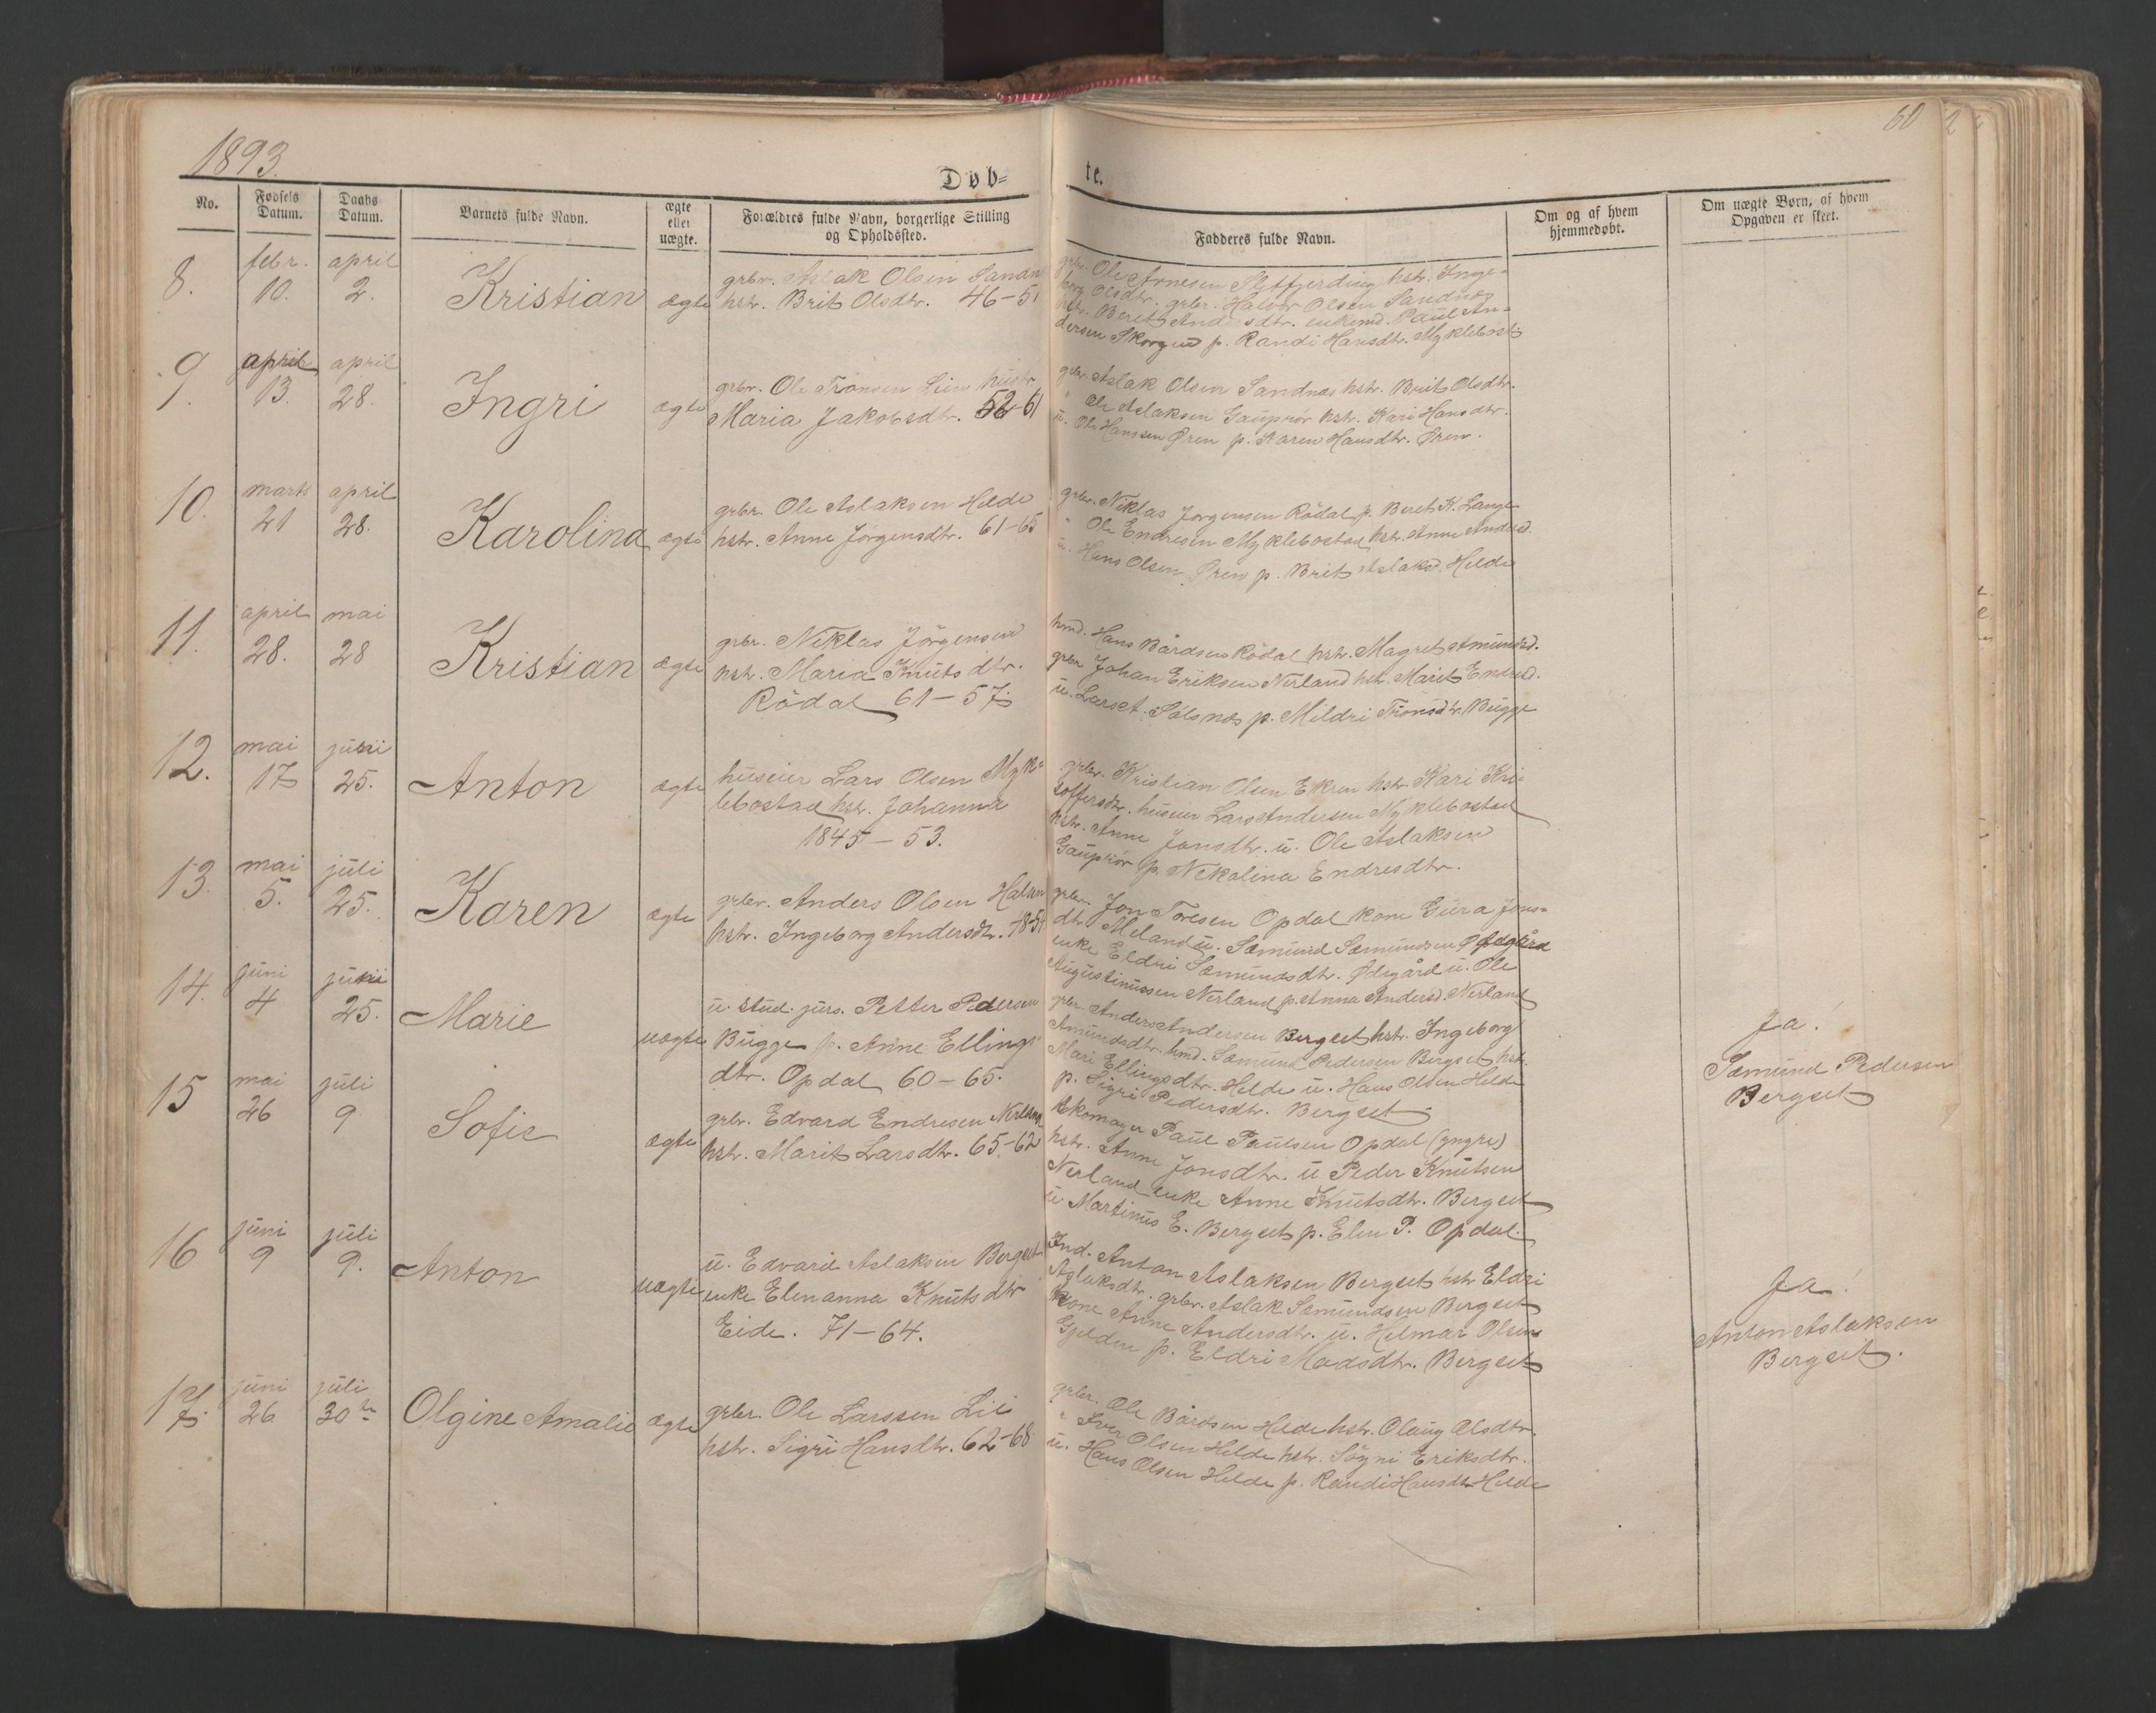 1893.
60
Døb-
te.
No.
Fødsels Datum.
Daabs Datum.
Barnets fulde Navn.
ægte eller uægte.
Forældres fulde Navn, borgerlige Stilling og Opholdssted.
Fadderes fulde Navn.
Om og af hvem hjemmedøbt.
Om uægte Børn, af hvem Opgaven er skeet.
8. febr. 10. april 2. Kristian ægte
grbr. Aslak Olsen Sandn
hstr. Brit Olsdtr. 46-51
grbr. Ole Arnesen Sletfjerding hstr. Inge-
borg Olsdtr. grbr. Halvor Olsen Sandnæs
hstr. Berit Andersdtr. enkemd. Paul An-
dersen Skorgen p. Randi Hansdtr. Myklebost
9. april 13. april 28. Ingri ægte
grbr. Ole Tronsen Lien hustr
Maria Jakobsdtr. 52-61
grbr. Aslak Olsen Sandnæs hstr. Brit Olsdtr.
" Ole Aslaksen Gauprør hstr. Kari Hansdtr.
u. Ole Hanssen Øren p. Karen Hansdtr. Øren.
10. marts 21 april 28. Karolina ægte
grbr. Ole Aslaksen Helde
hstr. Anne Jørgensdtr. 61-65
grbr. Niklas Jørgensen Rödal p. Beret K. Lange
" Ole Endresen Myklebostad hstr. Anne Andersd.
u. Hans Olsen Øren p. Brit Aslaksd. Helde
11. april 28. mai 28 Kristian ægte
grbr. Niklas Jörgensen
hstr. Maria Knutsdtr.
Rödal 61-57
hmd. Hans Bårdsen Rödal hstr. Magret Amundsd.
grbr Johan Eriksen Nerland hstr. Marit Endresd.
u. Lars A. Solsnæs p. Mildri Tronsdtr. Bugge
12. mai 17 juni 25. Anton ægte
huseier Lars Olsen Myk-
lebostad hstr. Johanna
1845-53.
grbr. Kristian Olsen Ekren hstr Kari Kri-
stoffersdtr. huseier Lars Andersen Myklebostad
hstr. Anne Jonsdtr. u. Ole Aslaksen
Gauprör p. Nekolina Endresdtr.
13. mai 5. juli 25. Karen ægte
grbr. Anders Olsen Halsen
hstr. Ingeborg Andersdtr. 48-51
grbr. Jon Toresen Opdal kone Gura Jons-
dtr. Meland u. Sæmund Sæmundsen Ødegård
enke Eldri Sæmundsdtr. Ødegård u. Ole
Augustinussen Nerland p. Anna Andersd. Nerland
14. juni 4 juni 25. Marie uægte
u. stud. jurs. Petter Pedersen
Bugge p. Anne Ellings
dtr. Opdal 60-65.
grbr. Anders Andersen Bergset hstr. Ingeborg
Amundsdtr. hmd. Sæmund Pedersen Bergset hstr.
Mari Ellingsdtr. Helde u. Hans Olsen Helde
p. Sigri Pedersdtr. Bergset
Ja!
Sæmund Pedersen
Bergset
15 mai 26 juli 9 Sofie ægte
grbr. Edvard Endresen Nerland
hstr. Marit Larsdtr. 65-62
skomager Paul Paulsen Opdal (yngre)
hstr. Anne Jonsdtr. u Peder Knutsen
Nerland enke Anne Knutsdtr. Bergset
u Martinus E. Bergset p. Elen P. Opdal.
16 juni 9 juli 9. Anton uægte
u. Edvard Aslaksen Bergset
enke Elenanna Knutsdtr
Eide. 71-64.
Ind. Anton Aslaksen Bergset hstr Eldri
Aslaksdtr. grbr. Aslak Sæmundsen Bergset
kone Anne Andersdtr. u. Helmar Olsen
Gjelden p. Eldri Madsdtr. Bergset
Ja!
Anton Aslaksen
Bergset.
17. juni 26 juli 30te Olgine Amalie ægte
grbr. Ole Larssen Lie
hstr. Sigri Hansdtr. 62-68
grbr. Ole Bårdsen Helde hstr. Olaug Olsdtr.
" Iver Olsen Helde hstr. Sögni Eriksdtr.
u. Hans Olsen Helde p. Randi Hansdtr Helde